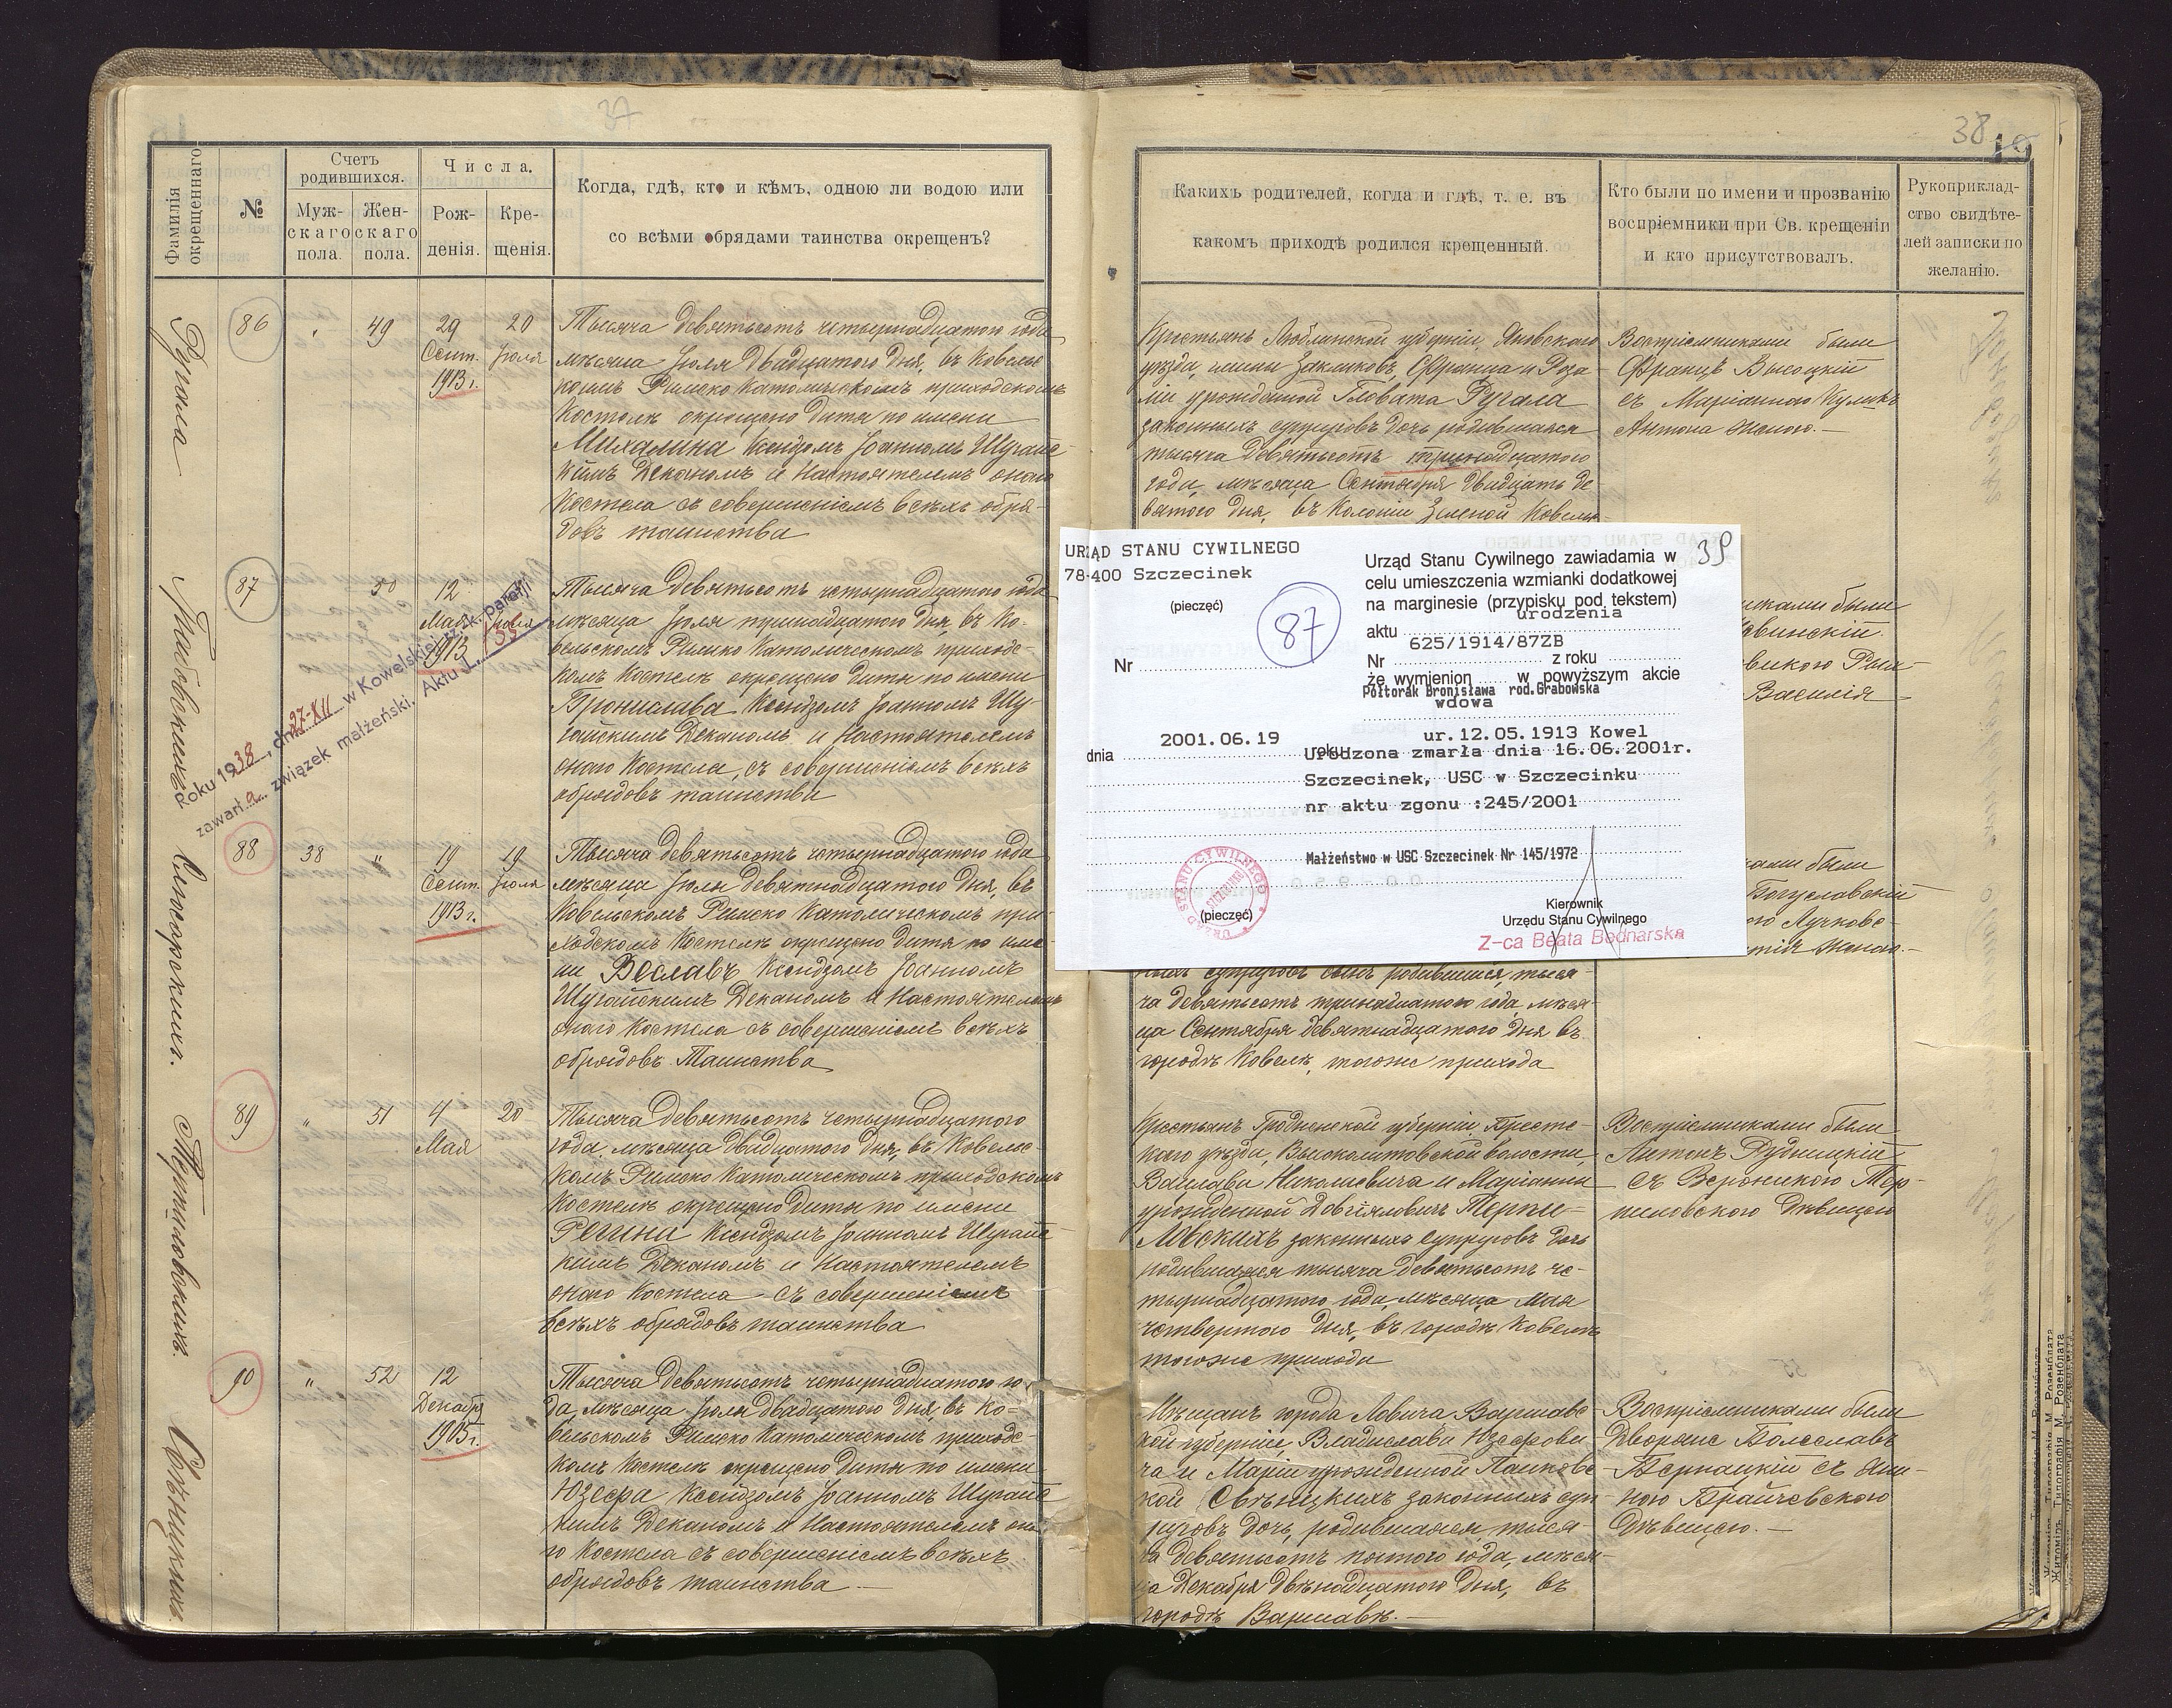 37
Фамилія окрещеннаго
№
Счетъ родившихся.
Мужскаго пола.
Женскаго пола.
Числа.
Рожденія.
Крещенія.
Когда, гдѣ, кто и кѣмъ, одною ли водою или
со всѣми обрядами таинства окрещенъ?
Ругала
86
49
29 Сент. 1913 г.
20 Іюля
Тысяча девятьсотъ четырнадцатого года
мѣсяца Іюля двадцатого дня, въ Ковельс
комъ Римско Католическомъ приходскомъ
Костелѣ окрещено дитя по имени
Михалина Ксендзомъ Іоанномъ Шугайс
кимъ Деканомъ и Настоятелемъ онаго
Костела съ совершеніемъ всѣхъ обря-
довъ таинства
87
50
12 Мая 1913
Іюля
Тысяча девятьсотъ четырнадцатого года
мѣсяца Іюля тринадцатого дня, въ Ко-
вельскомъ Римско Католическомъ приходс-
комъ Костелѣ окрещено дитя по имени
Бронислава Ксендзомъ Іоанномъ Шу-
гайскимъ Деканомъ и Настоятелемъ
онаго Костела, съ совершеніемъ всѣхъ
обрядовъ таинства
Roku 1938, dnia 27-XII w Kowelskiej rz.-k. parafji
zawarła związek małżeński. Akt
88
38
"
19 Сент. 1913 г.
19 Іюля
Тысяча девятьсотъ четырнадцатого года
мѣсяца Іюля девятнадцатого дня, въ
Ковельскомъ Римско Католическомъ при-
ходскомъ Костелѣ окрещено дитя по име-
ни Веславъ Ксендзомъ Іоанномъ
Шугайскимъ Деканомъ и Настоятелемъ
онаго Костела съ совершеніемъ всѣхъ
обрядовъ Таинства
89
"
51
4 Мая
20
Тысяча девятьсотъ четырнадцатого
года, мѣсяца двадцатого дня, въ Ковельс-
комъ Римско Католическомъ приходскомъ
Костелѣ окрещено дитя по имени
Регина Ксендзомъ Іоанномъ Шугайс
кимъ Деканомъ и Настоятелемъ
онаго Костела съ совершеніемъ
всѣхъ обрядовъ таинства
90
"
52
12 Декабр 1905 г.
Тысяча девятьсотъ четырнадцатого го-
да, мѣсяца Іюля двадцатого дня, въ Ко-
вельскомъ Римско Католическомъ приходс-
комъ Костелѣ окрещено дитя по имени
Юзефа Ксендзомъ Іоанномъ Шугайс
кимъ Деканомъ и Настоятелемъ она
го Костела съ совершеніемъ всѣхъ
обрядовъ таинства —
38
Какихъ родителей, когда и гдѣ, т. е. въ
какомъ приходѣ родился крещенный.
Кто были по имени и прозванію
воспріемники при Св. крещеніи
и кто присутствовалъ.
Рукоприклад-
ство свидѣте-
лей записки по
желанію.
Крестьянъ Люблинской губерніи, Яновского
уѣзда, гмины Закликовъ, Франца и Роза-
ліи урожденной Гловата Ругала
законныхъ супруговъ дочь родившаяся
тысяча девятьсотъ тринадцатого
года, мѣсяца Сентября двадцать де
вятого дня, въ Колоніи Зеленой Ковельс-
Воспріемниками были
Францъ Высоцкій
съ Маріанною Куликъ
Антона женою.—
URZĄD STANU CYWILNEGO
78-400 Szczecinek
(pieczęć)
87
Nr
dnia 2001.06.19 roku
(pieczęć)
39
Urząd Stanu Cywilnego zawiadamia w
celu umieszczenia wzmianki dodatkowej
na marginesie (przypisku pod tekstem)
aktu urodzenia
Nr 625/1914/87ZB z roku
że wymienion w powyższym akcie
Półtorak Bronisława rod.Grabowska
wdowa
ur.12.05.1913 Kowel
Urodzona zmarła dnia 16.06.2001r.
Szczecinek, USC w Szczecinku
nr aktu zgonu :245/2001
Małżeństwo w USC Szczecinek Nr 145/1972
Kierownik
Urzędu Stanu Cywilnego
Z-ca Beata Bednarska
URZĄD STANU CYWILNEGO
никами были
Василія
ками были
Богуславскій
ныхъ супруговъ сынъ родившійся, тыся-
ча девятьсотъ тринадцатого года, мѣся-
ца Сентября девятнадцатого дня въ
городѣ Ковелѣ, тогоже прихода
Крестьянъ Гродненской губерніи Брестс-
кого уѣзда, Высоколитовской волости,
Вацлава Николаевича и Маріанны
урожденной Довгяловичъ Терпи-
ловскихъ законныхъ супруговъ дочь
родившаяся тысяча девятьсотъ че-
тырнадцатого года, мѣсяца Мая
четвертого дня, въ городѣ Ковелѣ
тогоже прихода
Воспріемниками были
Антонъ Рудницкій
съ Вероникою Тер-
пиловскою Дѣвицею
Мѣщанъ города Ловича Варшавс
кой губерніи, Владислава Юзефови-
ча и Маріи урожденной Панковс-
кой Свѣницкихъ законныхъ суп-
руговъ дочь, родившаяся тыся-
ча девятьсотъ пятого года, мѣся-
ца Декабря двѣнадцатого дня, въ
городѣ Варшавѣ.—
Воспріемниками были
Дворяне Болеславъ
Бернацкій съ Ан-
ною Брайчевскою
Дѣвицею.—
Житоміръ, Типографія М. Розенблата